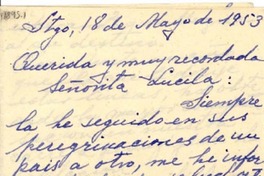 Stgo, 18 de Mayo de 1953
Querida y muy recordada
Señorita Lucila:
Siempre
la he seguido en sus
peregrinaciones de un
pais a otro, me he infor